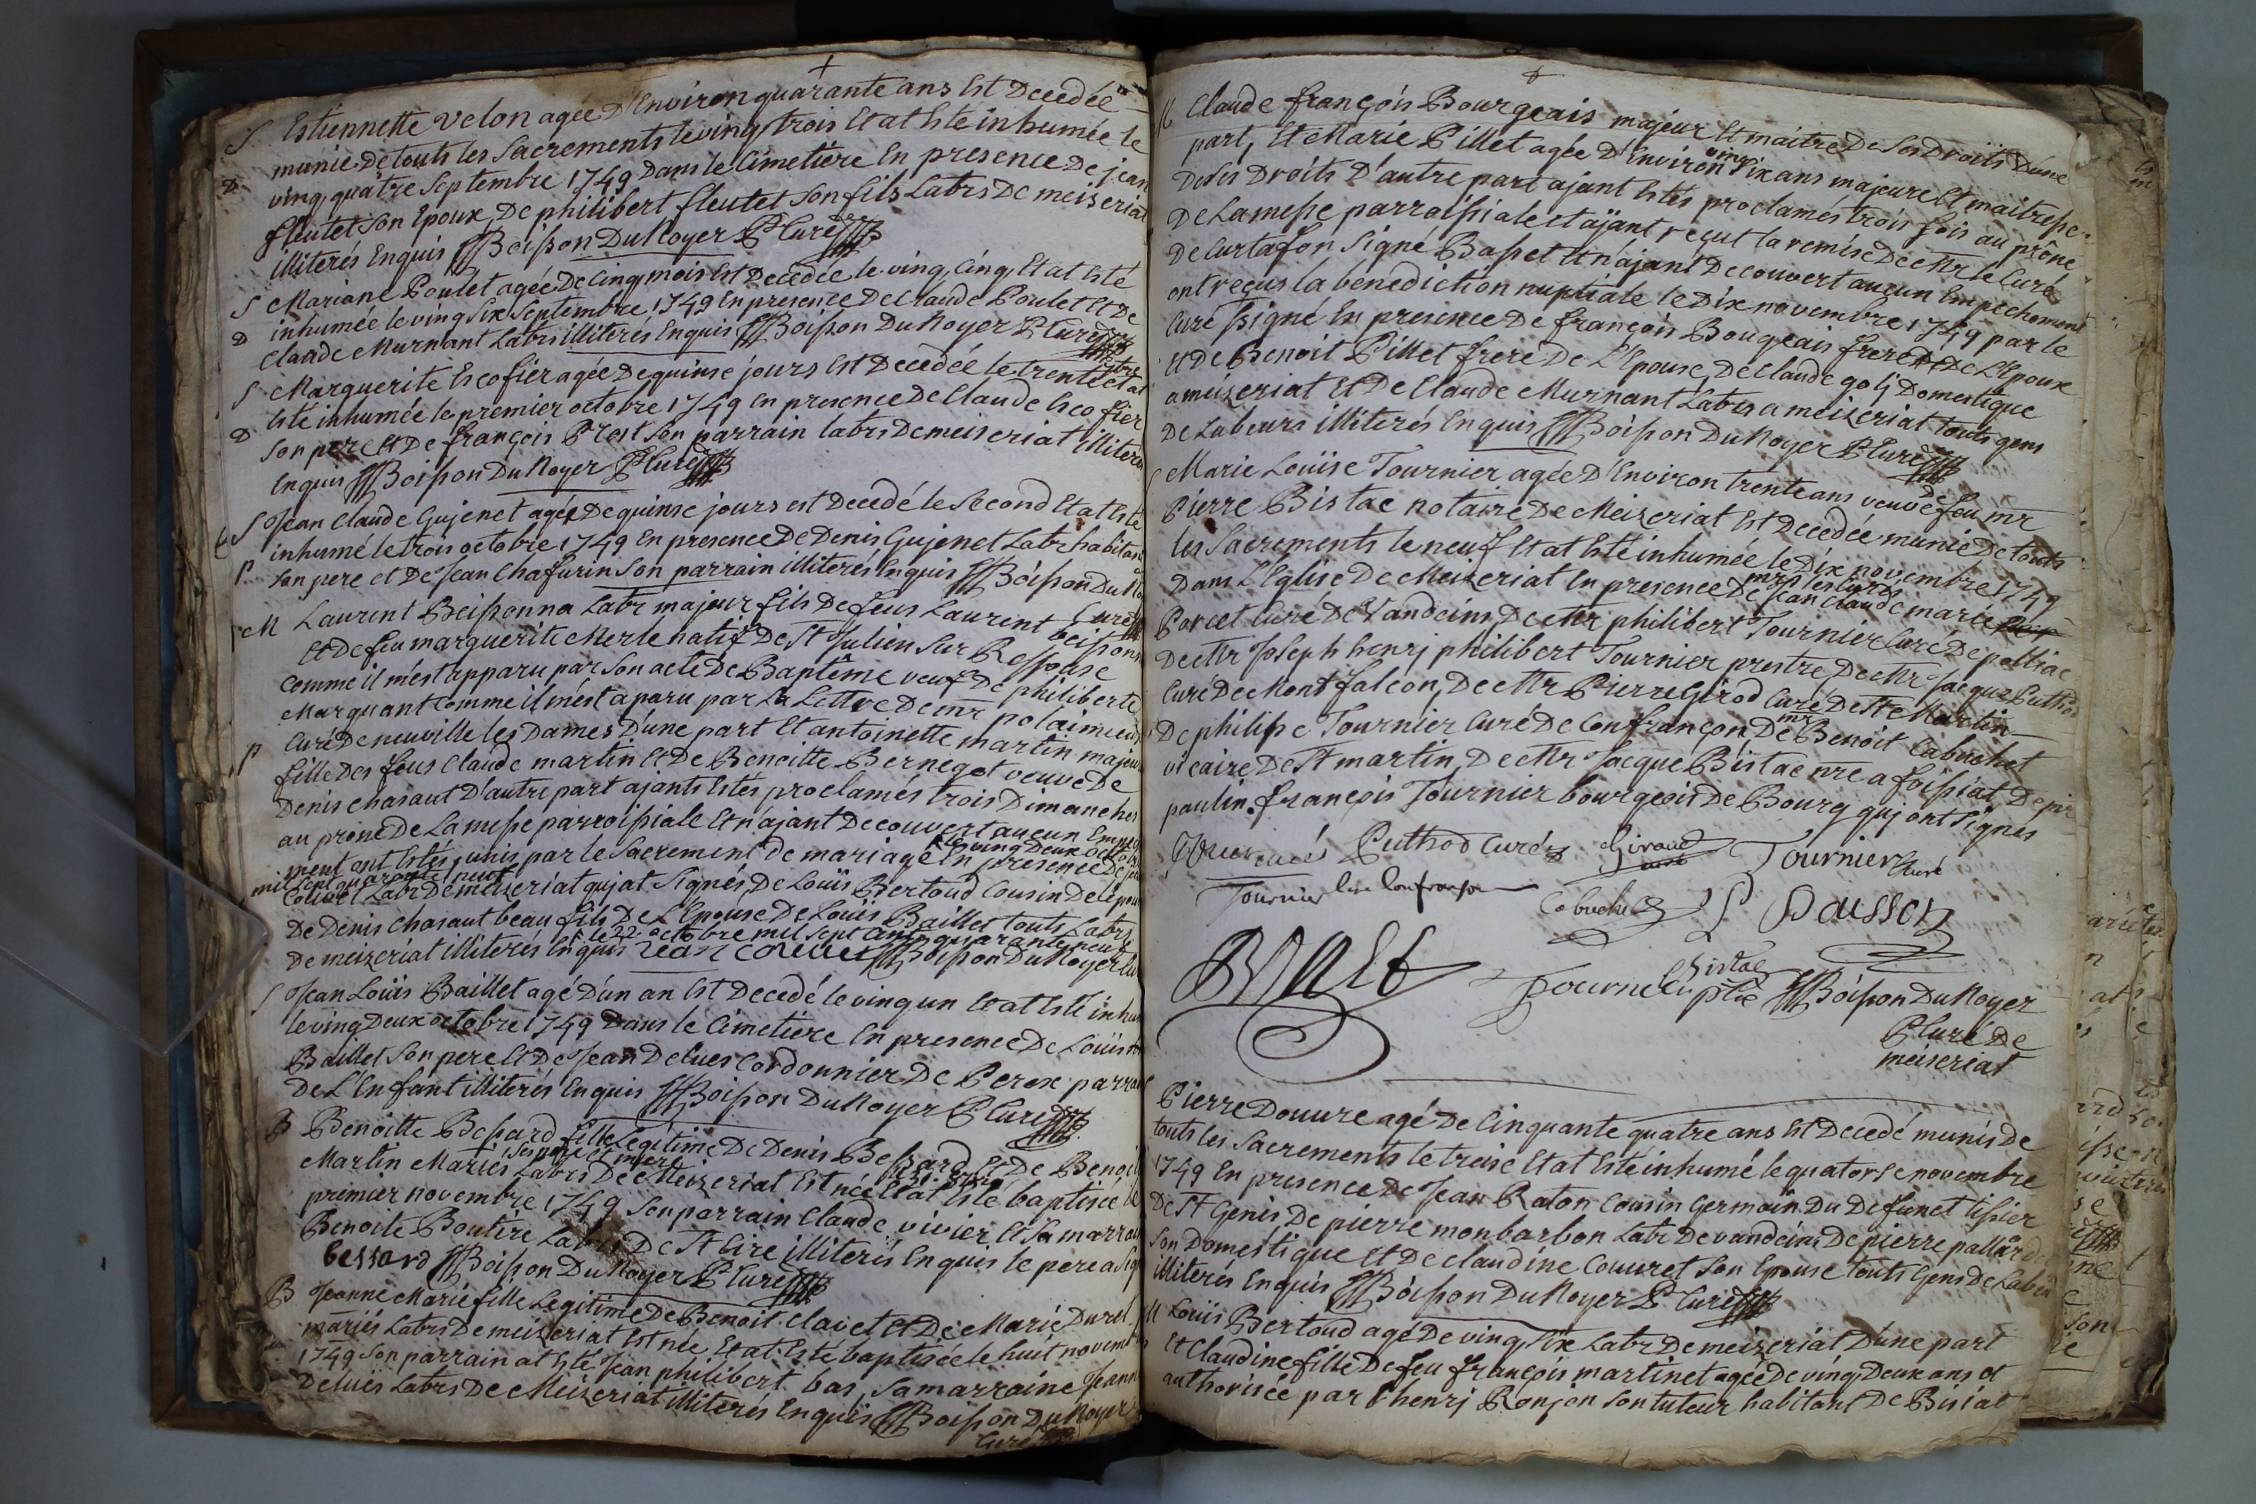 S Estiennette Velon agée D'Environ quarante ans Est Decedée
munie De touts les Sacrements le ving, trois Et at Esté inhumée le
D ving, quatre Septembre 1749 Dans le Cimetiere En presence De jean
fleutet Son Epoux, De philibert fleutet Son fils Labrs De meiseriat
illiterés Enquis Boisson Du Noyer P Curé
S Mariane Poulet agée De Cinq mois Est Decedée le ving, Cinq, Et at Esté
D inhumée le ving Six Septembre 1749 En presence De Claude Poulet Et De
Claude Murnant Labrs illiterés Enquis Boisson Du Noyer P Curé
S Marguerite Escofier agée De quinse jours Est Decedée le trente Et at
D Esté inhumée le premier octobre 1749 En presence De Claude Escofier
Son pere Et De françois Prost Son parrain labrs De meiseriat illiterés
Enquis Boisson Du Noyer P Curé
S Jean Claude Gujenet agé De quinse jours est Decedé le Second Et at Esté
inhumé le trois octobre 1749 En presence De Denis Gujenet Labr habitant
P Son pere et De Jean Chafurin Son parrain illiterés Enquis Boisson Du No
Curé
M Laurent Beissonna Labr majeur fils De feus Laurent beissonna
Et De feu marguerite Merle natif De St Julien Sur Ressouse
Comme il m'est apparu par Son acte De Baptême veuf De philiberte
Marquant Comme il m'est aparu par La Lettre De mr
Curé De neuville les Dames D'une part Et antoinette martin majeure
P fille Des feus Claude martin Et De Benoitte Bernegot veuve De
Denis Chasaut D'autre part ajants Estés proclamés trois Dimanches
au prône De La messe parroissiale Et n'ajant Decouvert aucun Empeche
ment ont Estés unis par le Sacrement de mariage En presence De
le ving Deux octobre
mil Sept quarante neuf
Collvet Labr De meizeriat qui at Signés, De Louïs Bertoud Cousin De lepou
De Denis Chasaut beau fils De L'Epouse De Louïs Baillet touts Labrs
le 22 octobre mil Sept Cents quarante neuf
De meizeriat illiterés Enquis Boisson Du Noyer Cu
S Jean Louïs Baillet agé D'un an Est Decedé le ving un Et at Esté inhu
le ving Deux octobre 1749 Dans le Cimetiere En presence De Louïs
Baillet Son pere Et De Jean Delues Cordonnier De Perex parrai
De L'Enfant illiterés Enquis Boisson Du Noyer P Curé
B Benoitte Bessard fille Legitime De Denis Bessard Et De Benoi
Ses pere et mere
Martin Mariés Labrs De Meizeriat Est née Et at Esté baptisée le
premier novembre 1749 Son parrain Claude vivier Et Sa marrai
Benoite Boutire Labrs De St Cire illiterés Enquis le pere a Sig
bessard Boisson Du Noyer P Curé
B Jeanne Marie fille Legitime De Benoit Clavet Et De Marie Durel
mariés Labrs De meizeriat Est née Et at Esté baptisée le huit novemb
1749 Son parrain at Esté Jean philibert bas, Sa marraine Jeann
Delues Labrs De Meizeriat illiterés Enquis Boisson Du Noyer
Curé
M Claude françois Bourgeais majeur Et maitre De Ses Droits D'une
part, Et Marie Pillet agée D'Environ Six ans majeure Et maitresse
De Ses Droits D'autre part ajant Estés proclamés trois fois au prône
De La messe parroissiale Et ajant reçut la remise De Mr le Curé
De Curtafon Signé Basset Et n'ajant Decouvert aucun Empechement
ont reçus la bénediction nuptiale le Dix novembre 1749 par le
Curé Ssigné En presence De françois Bougeais frere De L'Epoux
Et De Benoit Pillet frere De L'Epouse, De Claude golj Domestique
a meizeriat Et De Claude Murnant Labrs a meizeriat touts gens
De Labeurs illiterés Enquis Boisson Du Noyer P Curé
S Marie Louïse Tournier agée D'Environ trente ans veuve De feu mr
Pierre Bistac notaire De Meizeriat Est Decedée munie De touts
les Sacrements le neuf Et at Esté inhumée le Dix novembre 1749
Dans L'Eglise De Meizeriat En presence De Jean Claude marie
mrs les Curés
Porcet Curé De Vandeins, De Mr philibert Tournier Curé De polliac
De Mr Joseph henrj philibert Tournier prestre, De Mr Jacque Puthod
Curé De Mont falcon, De Mr Pierre Girod Curé De St Martin
De philipe Tournier Curé De Confrançon, De mr Benoit Cabuchet
vicaire De St martin, De Mr Jacque Bistac nre a foissiat De
paulin françois Tournier bourgeois De Bourg quj ont Signés
Puthod Curé Giraud Curé Tournier Curé
Tournier Cure Confranson Cabuchet
Tournier ptre Bistac Boisson Du Noyer
P Curé De
meiseriat
Pierre Douvre agé De Cinquante quatre ans Est Decedé munis De
touts les Sacrements le treise Et at Esté inhumé le quatorse novembre
1749 En presence De Jean Raton Cousin Germain Du Defunct tissier
De St Genis De pierre monbarbon Labr De vandeins, De pierre pallard
Son Domestique Et De Claudine Couvret Son Epouse touts Gens De Labeu
illiterés Enquis Boisson Du Noyer P Curé
M Louïs Bertoud agé De ving, Six Labr De meizeriat D'une part
Et Claudine fille De feu françois martinet agée De ving Deux ans et
authorisée par henrj Ronjon Son tuteur habitant De Bisiat